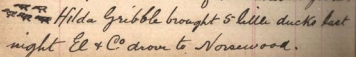 Hilda Gribble brought 5 little ducks last
night El & Co drove to Norsewood.